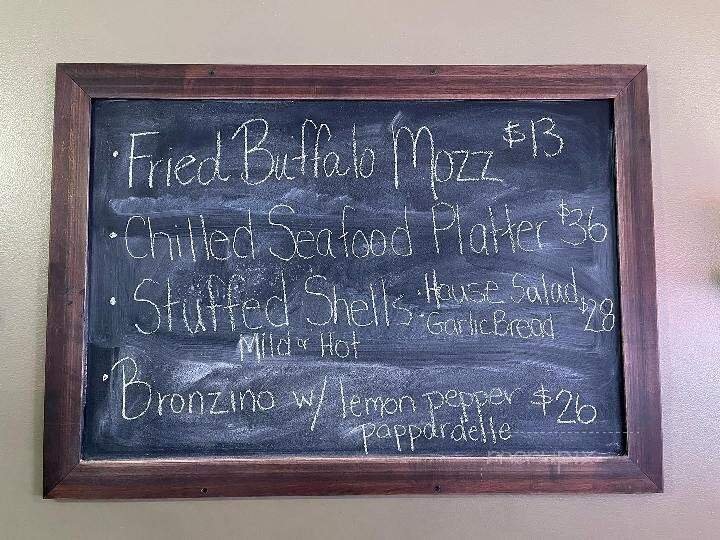 · Fried Buffalo Mozz $13
· Chilled Seafood Platter $36
· Stuffed Shells · House Salad $28
· Garlic Bread
Mild or Hot
· Bronzino w/ lemon pepper $26
pappardelle